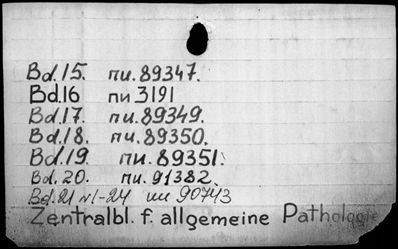 Bd.15. пи.89347.
Bd.16 пи 3191
Bd.17. пи.89349.
Bd.18. пи.89350.
Bd.19. пи.89351.
Bd.20. пи.91382.
Bd.21 №1-24 пи 90743
Zentralbl. f. allgemeine Pathologie